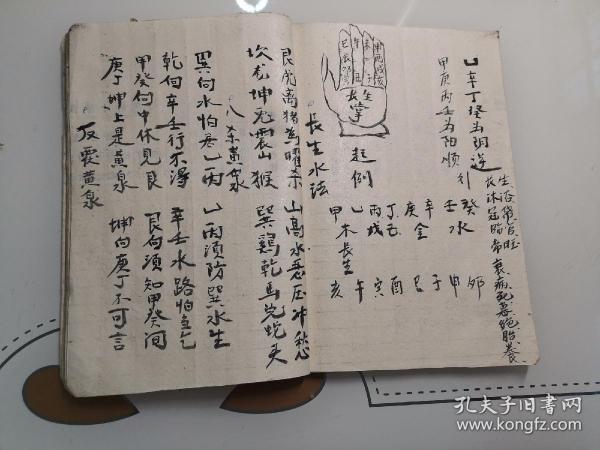 生浴冠官旺
长沐冠临帝衰病死墓绝胎养
乙辛丁癸为阴逆
甲庚丙壬为阳顺行
癸水 壬 申 卯
辛 庚金 巳 子
丁 丙戊 寅 酉
乙 甲木长生 亥 午
起例
长生掌
长生水法
山高水恶压冲愁
巽鸡乾马兑蛇头
艮虎离猪为曜杀
坎龙坤兔震山猴
八杀黄泉
乙丙须防巽水生
巽向水怕忌乙丙
辛壬水路怕当乾
乾向辛壬行不得
艮向须知甲癸间
甲癸向中休见艮
坤向庚丁不可言
庚丁坤上是黄泉
反覆黄泉
孔夫子旧书网
www.kongfz.com